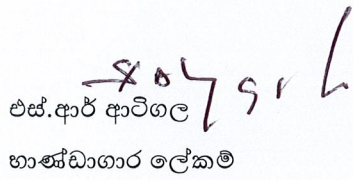 එස්.ආර් ආටිගල
හාණ්ඩාගාර ලේකම්